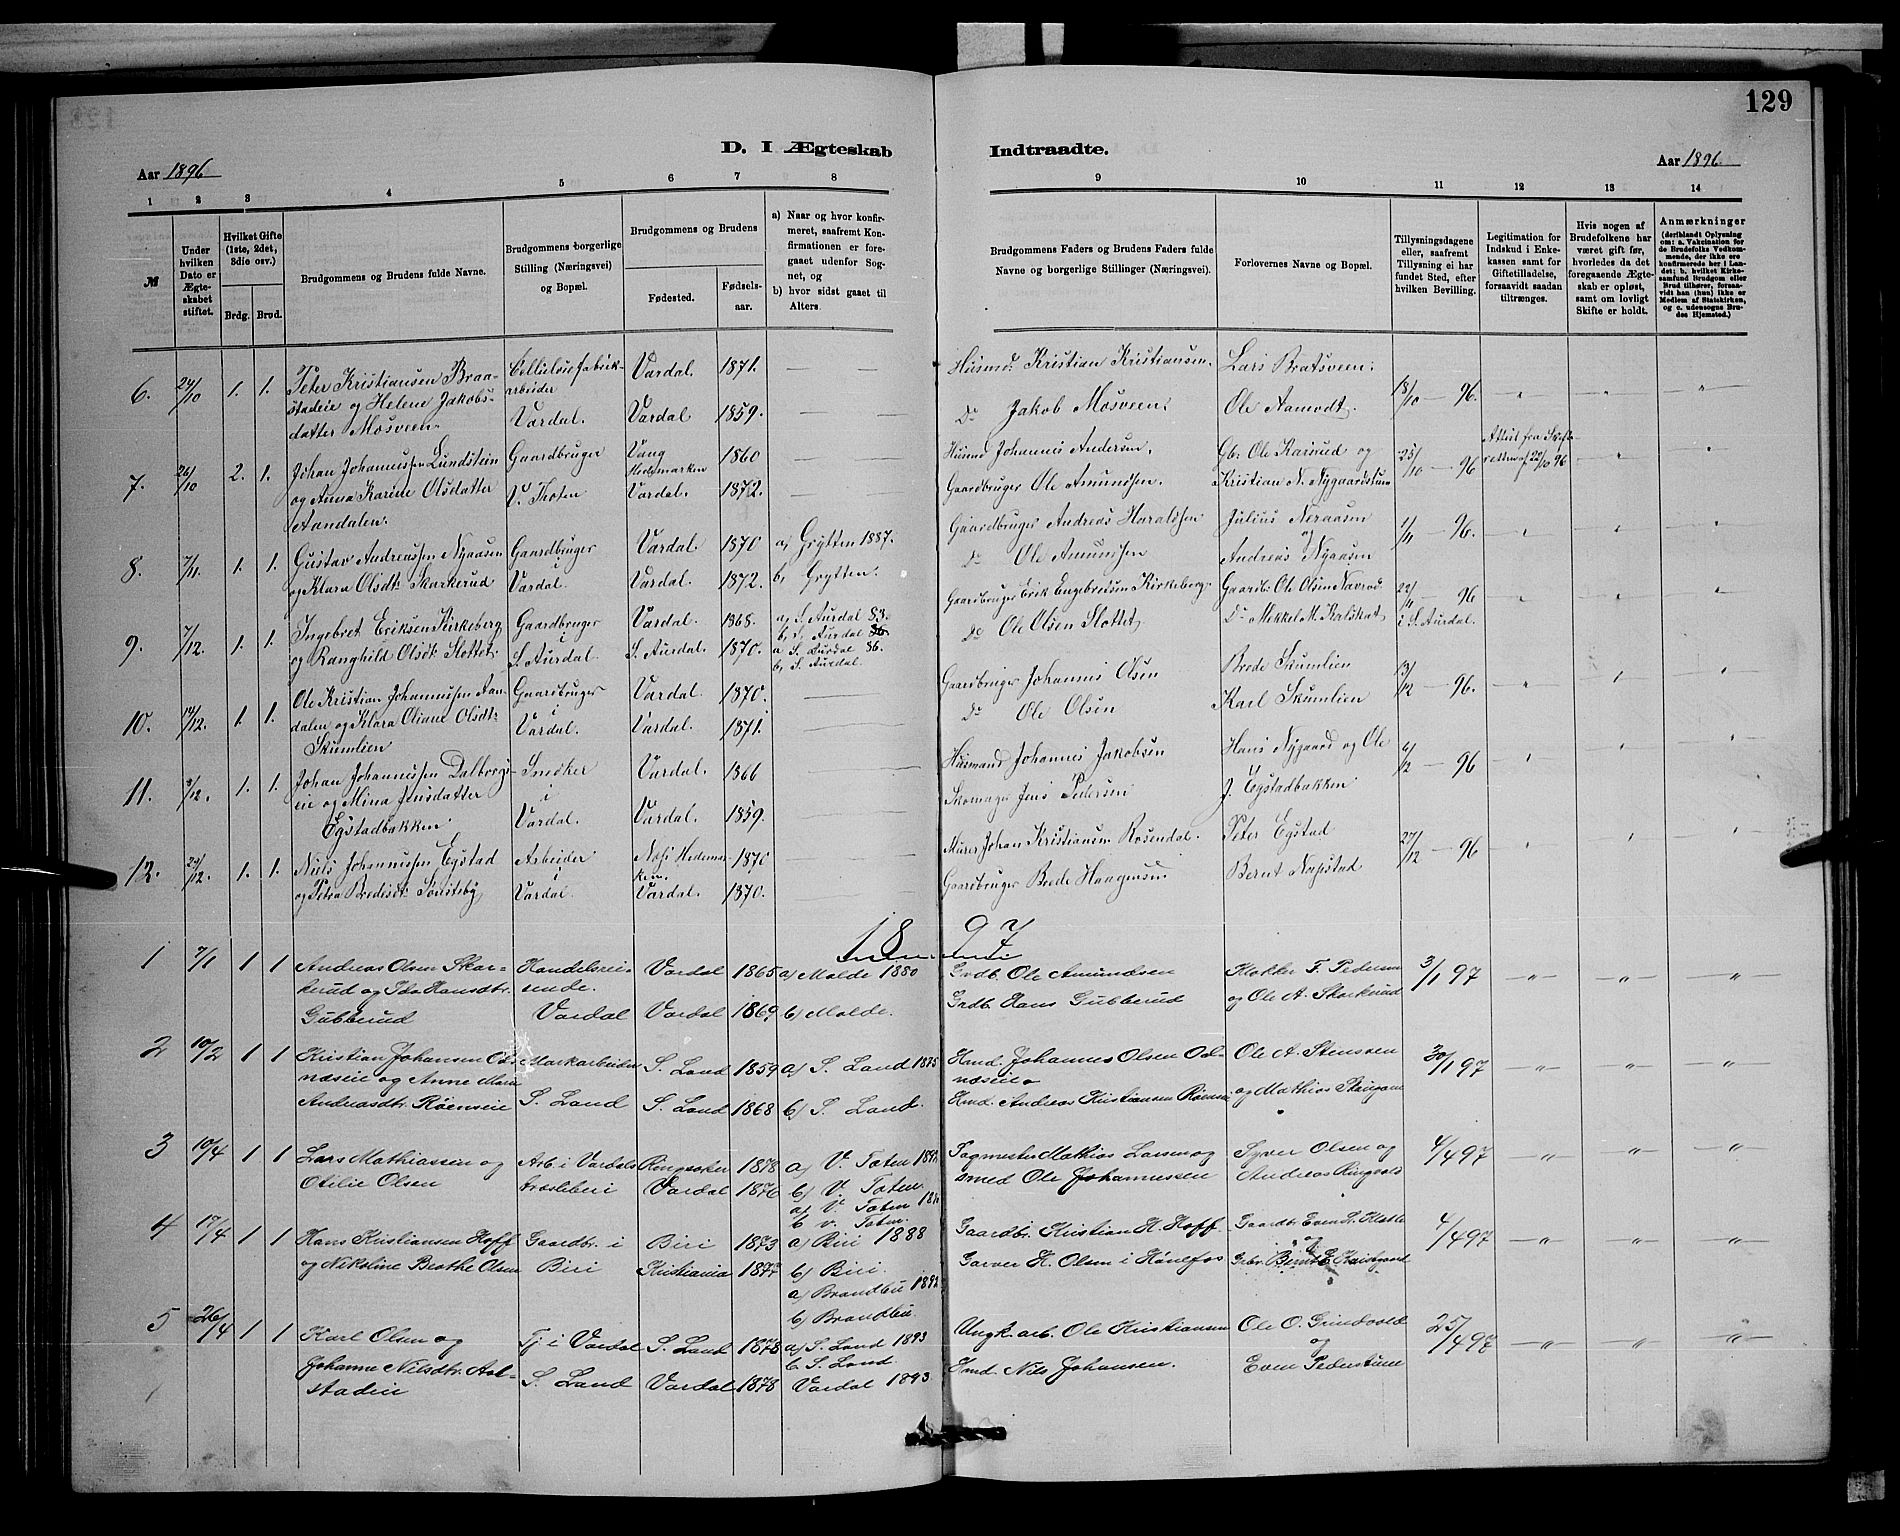 129
D. I Ægteskab Indtraadte.
Aar 1896 Aar 1896
1 2 3 4 5 6 7 8 9 10 11 12 13 14
№
Under hvilken Dato er Ægteskabet stiftet.
Hvilket Gifte (1ste, 2det, 3die osv.)
Brdg. Brud.
Brudgommens og Brudens fulde Navne.
Brudgommens borgerlige Stilling (Næringsvei) og Bopæl.
Brudgommens og Brudens
Fødested.
Fødselsaar.
a) Naar og hvor konfirmeret, saafremt Konfirmationen er foregaaet udenfor Sognet, og
b) hvor sidst gaaet til Alters.
Brudgommens Faders og Brudens Faders fulde Navne og borgerlige Stillinger (Næringsvei).
Forlovernes Navne og Bopæl.
Tillysningsdagene eller, saafremt Tillysning ei har fundet Sted, efter hvilken Bevilling.
Legitimation for Indskud i Enkekassen samt for Giftetilladelse, forsaavidt saadan tiltrænges.
Hvis nogen af Brudefolkene har været gift før, hvorledes da det foregaaende Ægteskab er opløst, samt om lovligt Skifte er holdt.
Anmærkninger (deriblandt Oplysning om: a. Vakcination for de Brudefolks Vedkommende, der ikke ere konfirmerede her i Landet; b. hvilket Kirkesamfund Brudgom eller Brud tilhører, forsaavidt han (hun) ikke er Medlem af Statskirken, og c. udensogns Brudes Hjemsted.)
6. 24/10 1. 1. Peter Kristiansen Braa- Cellulosefabrik- Vardal. 1871. — — Husmd. Kristian Kristiansen. Lars Bratsveen. 18/10 — 96. " " "
stadeie og Helene Jakobs- arbeider
datter Mosveen. Vardal. Vardal 1859. — — Do Jakob Mosveen. Ole Aamodt.
7. 26/10 2. 1. Johan Johannessen Lundstein Gaardbruger Vang Hedemarken 1860 — — Husmd Johannes Andersen. Gb. Ole Karsrud og 25/10 — 96 Attest fra Skifteretten af 22/10 96 " "
og Anna Karine Olsdatter V. Thoten Vardal. 1872. — — Gaardbruger Ole Amundsen. Kristian N. Nygaardstuen
Aandalen.
8. 7/11. 1. 1. Gustav Andreassen Nyaasen Gaardbruger Vardal. 1870 a) Grytten 1887. Gaardbruger Andreas Haraldsen Julius Neraasen 1/11 — 96. " " "
og Klara Olsdt. Skarkerud i Vardal. Vardal. 1872. b) Grytten. Do Ole Amundsen og Andreas Nyaasen
9. 7/12. 1. 1. Ingebret Eriksen Kirkeberg Gaardbruger Vardal. 1868. a) S. Aurdal 83. Gaardbruger Erik Engebretsen Kirkeberg. Gaardb. Ole Olsen Navrod 22/11 — 96 " " "
b) S. Aurdal 86
og Ranghild Olsdt. Slottet. i S. Aurdal. S. Aurdal. 1870. a S. Aurdal 86. Do Ole Olsen Slottet Do Mekkel M. Kalskat i S. Aurdal.
b) S. Aurdal.
10. 14/12. 1. 1. Ole Kristian Johannessen Aan- Gaardbruger Vardal. 1870. — Gaardbruger Johannes Olsen Brede Skumlien 13/12 — 96. " " "
dalen og Klara Oliane Olsdt. i Vardal. Vardal. 1871. — Do Ole Olsen Karl Skumlien
Skumlien
11. 1. 1. Johan Johannessen Dalborgs- Snedker Vardal. 1866 — Husmand Johannes Jakobsen Hans Nygaard og Ole 6/12 — 96 " " "
eie og Mina Jensdatter i Vardal. Vardal. 1859. — Skomager Jens Pedersen J. Egstadbakken
Egstadbakken
12. 29/12. 1. 1. Niels Johannessen Egstad Arbeider Næs Hedemarken. 1870 — Murer Johan Kristiansen Rosendal. Peter Egstad 27/12 — 96 " " "
og Petra Bredesdt. Sønsteby i Vardal. Vardal. 1870. — Gaardbruger Brede Haagensen Bernt Nøpstad
1897
1 7/1 1 1 Andreas Olsen Skar- Handelsrei- Vardal 1865 a) Molde 1880 Grdb. Ole Amundsen Klokker F. Pedersen 3/1 97 —"— —"— —"—
kerud og Ida Hansdtr. sende. Vardal 1869 b) Molde. Grdb. Hans Gubberud og Ole A. Skarkerud
Gubberud Vardal
2 10/2 1 1 Kristian Johansen Od- Markarbeider S. Land 1859 a) S. Land 1875 Hmd. Johannes Olsen Od- Ole A. Stensven 30/1 97 —"— —"— —"—
næseie og Anne Marie næseie
Andreasdtr. Røenseie S. Land S. Land 1868 b) S. Land. Hmd. Andreas Kristiansen Røensei og Mathias
3 10/4 1 1 Lars Mathiassen og Arb. i Vardals Ringsaker 1878 a) V. Toten Tagmester Mathias Larsen og Syver Olsen og 4/4 97 —"— —"— —"—
Otilie Olsen træsliberi Vardal 1876 b) V. Toten. smed Ole Johannessen Andreas Ringvold
a) V. Toten
b v. Toten.
4 17/4 1 1 Hans Kristiansen Hoff Gaardbr. i Biri 1873 a) Biri 1888 Gaardbr. Kristian H. Hoff Gaardbr. Even 4/4 97 —"— —"— —"—
og Nikoline Birthe Olsen Biri Kristiania 1877 b) Biri. Garver H. Olsen i Hønefos og Bernt E.
a) Brandbu 1892
b) Brandbu
5 26/4 1 1 Karl Olsen og Tj. i Vardal S. Land 1878 a) S. Land 1893 Ungk. arb. Ole Kristiansen Ole O. Grindvold 25/4 97 —"— —"— —"—
b S. Land og
Johanne Nilsdtr. Aal- S. Land Vardal 1878 Vardal 1893 Hmd. Nils Johansen. Even Pederstuen
stadeie